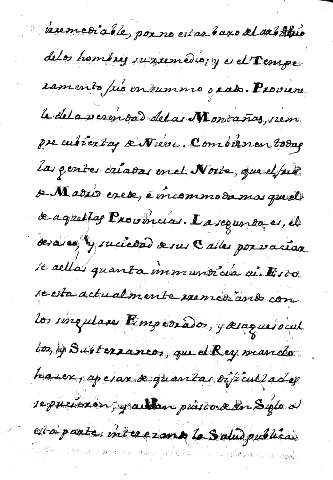 irremediable, por no estar baxo del arbitrio
de los hombres su remedio; y es el Tempe
ramento frio en summo grado. Proviene
le de la vecindad de las Montañas, siem
pre cubiertas de Nieve. Combienen todas
las gentes criadas en el Norte, que el frio
de Madrid excede, è incommoda mas que el
de aquellas Provincias. La segunda es, el
deseaseo, y suciedad de sus Calles por vaciar
se a ellas quanta immundicia ai. Esto
se esta actualmente remediando con
los singulares Empedrados, y desagues ocul
tos, y Subterraneos, que el Rey mandò
hacer, apesar de quantas dificultades
se pusieron; y aun punto de un Siglo a
esta parte, interezando la Salud publica